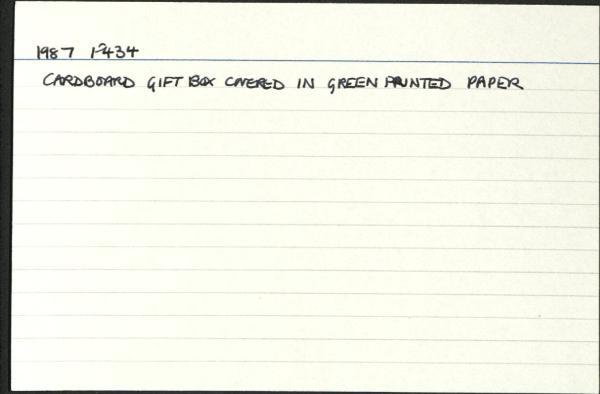 1987 1-434
CARDBOARD GIFT BOX COVERED IN GREEN PRINTED PAPER